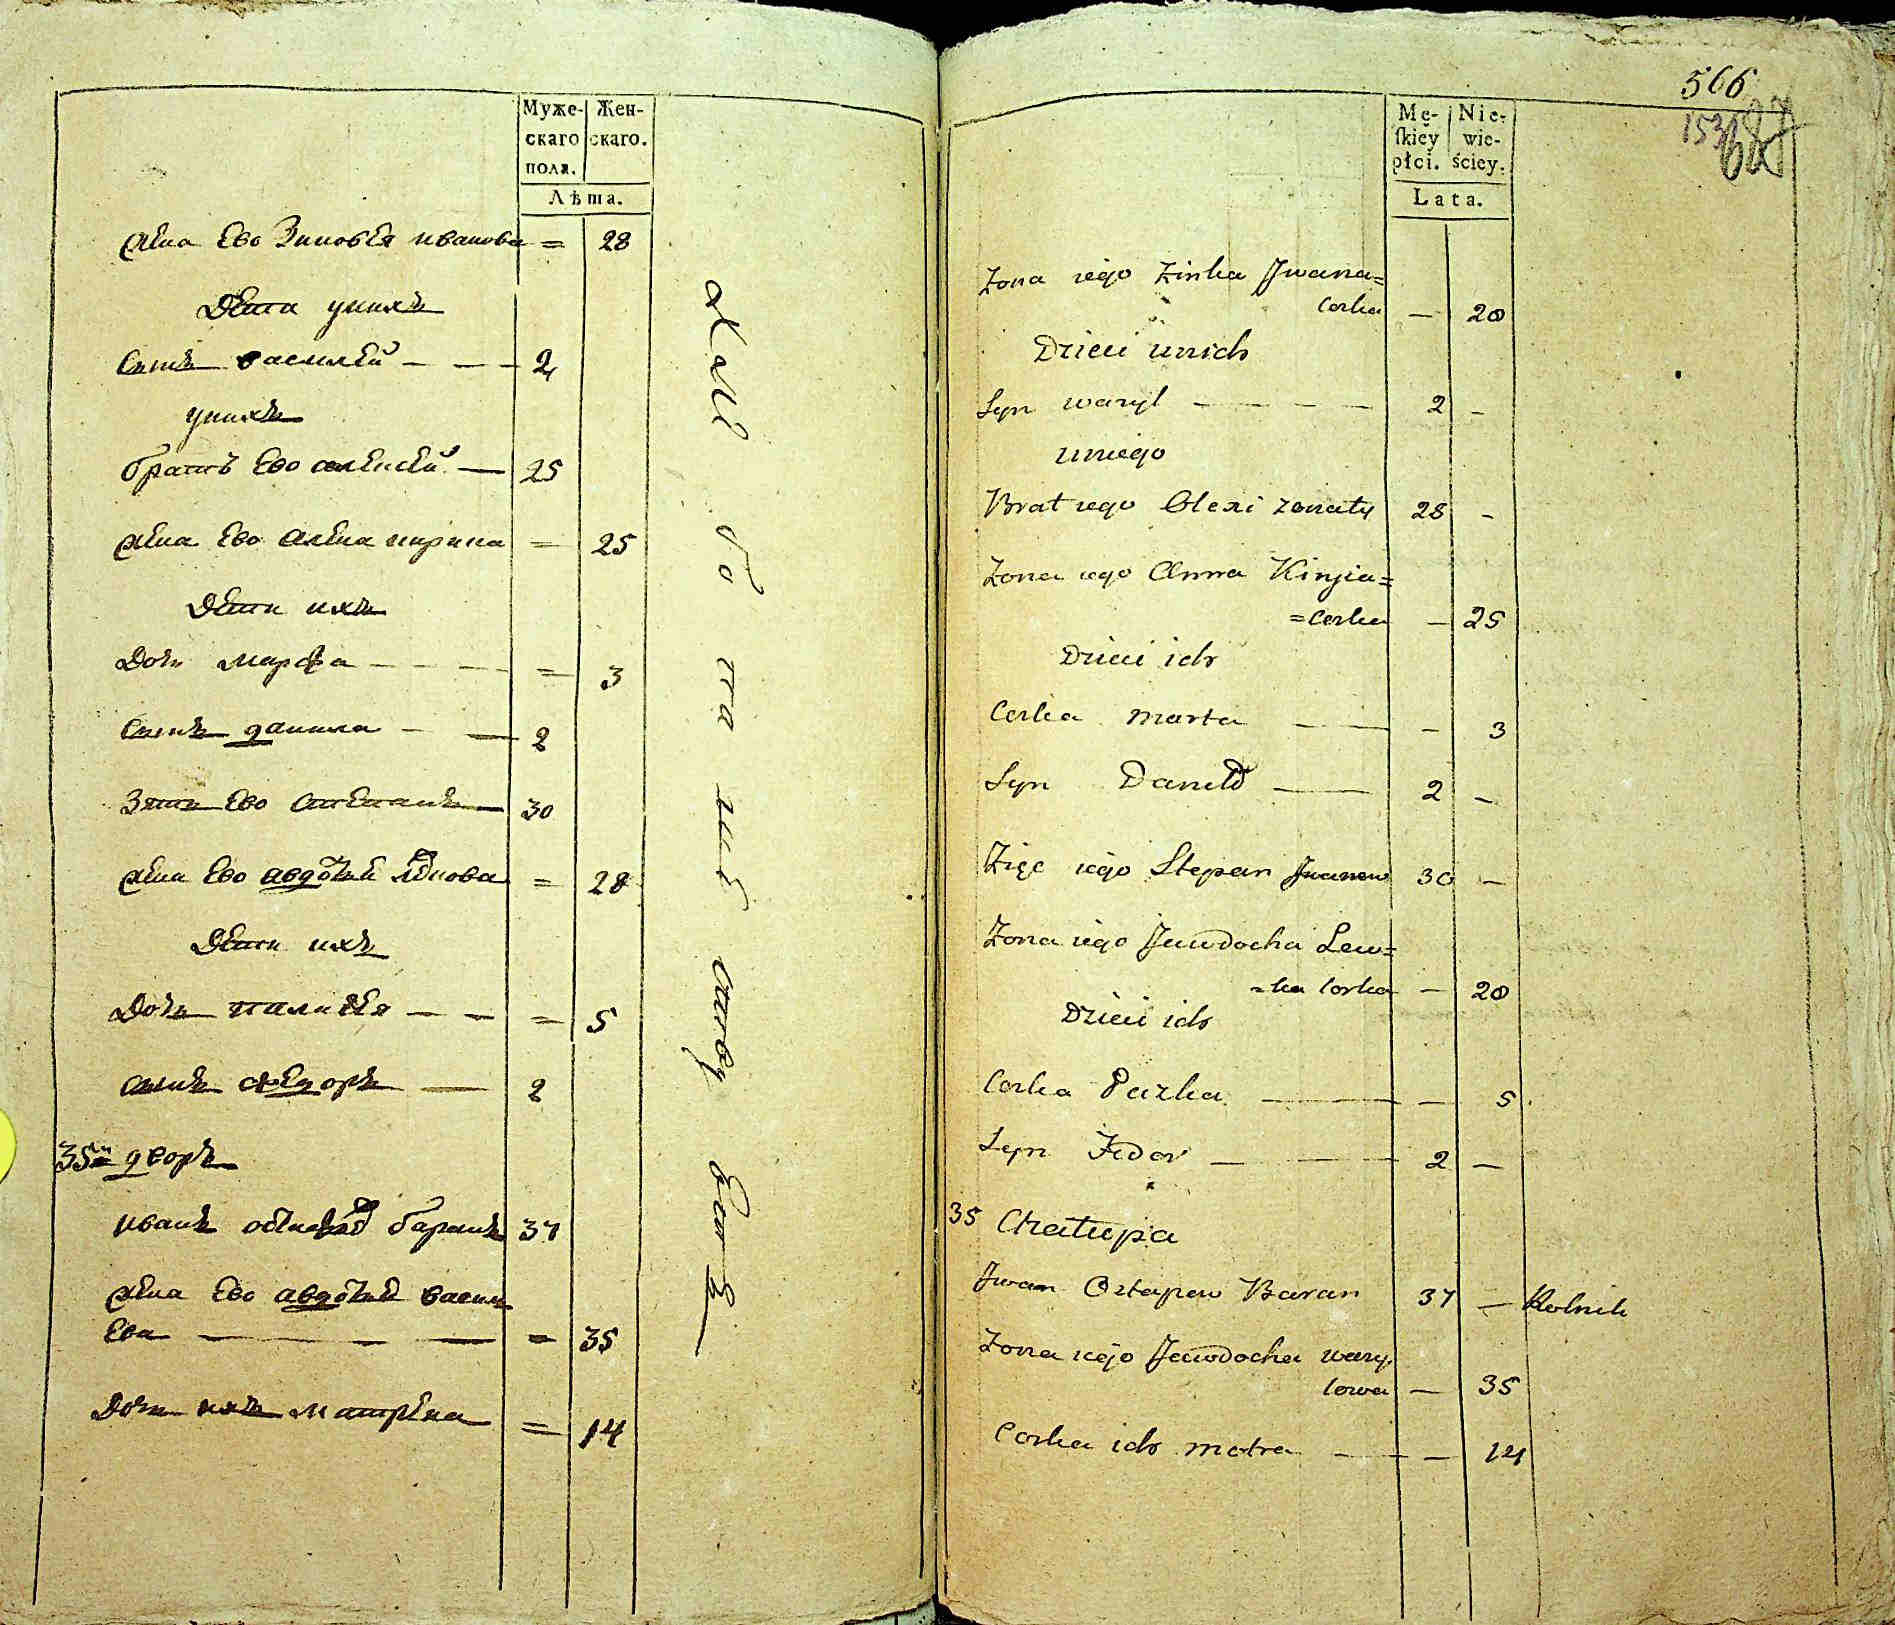 Муже-
скаго
пола.
Жен-
скаго.
Лѣта.
жена Ево Зиновея иванова = 28
Дети унихъ
Сынъ василей — — — 2
унихъ
братъ Ево алексей — 25
жена Ево Алена кирила = 25
Дети ихъ
Дочь марфа — — — = 3
Сынъ данила — — 2
Зять Ево степанъ — 30
жена Ево авдотья = 28
Дети ихъ
Дочь — — = 5
сынъ федоръ — 2
35й дворъ
иванъ баранъ 37
жена Ево авдотья васи
Ева — — — = 35
Дочь ихъ матрена = 14
566
153
Mę-
skiey
płci.
Nie-
wie-
ściey.
Lata.
Żona iego Zinka Jwana=
Corka — 28
Dzieci unich
Syn wasyl — — — — 2 —
uniego
Brat iego Olexi zonaty 28 —
Żona iego Anna Kiryla=
=Corka — 25
Dzieci ich
Corka Marta — — — 3
Syn Daniło — — 2 —
Zięc iego Stepan Jwanow 30 —
Żona iego Jewdocha Lew=
=ka Corka — 28
Dzieci ich
Corka Pazka — — — 5
Syn Fedor — — — 2 —
35 Chałupa
Jwan Ostapow Baran 37 — Rolnik
Żona iego Jewdocha wasy
lowa — 35
Corka ich motra — — — 14